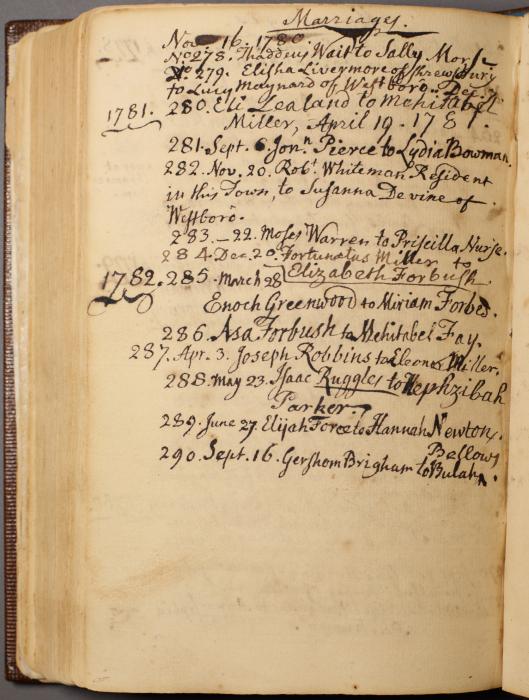 Marriages.
Nov 16. 1780
No 278. Thaddeus Wait to Sally Morse
No 279. Elisha Livermore of Shrewsbury
to Lucy Maynard of Westboro. Dec.
1781. 280. Eli Zealand to Mehitabel
Miller, April 19. 1781.
281. Sept. 6. Jonn. Pierce to Lydia Bowman.
282. Nov. 20. Robt. Whiteman Resident
in this Town, to Susanna Devine of
Westboro.
283. — 22. Moses Warren to Priscilla Nurse.
284. Dec. 20. Fortunatus Miller to
Elizabeth Forbush
1782. 285. March 28
Enoch Greenwood to Miriam Forbes.
286. Asa Forbush to Mehitabel Fay.
287. Apr. 3. Joseph Robbins to Eleonor Miller.
288. May 23. Isaac Ruggles to Hephzibah
Parker.
289. June 27. Elijah Force to Hannah Newton.
290. Sept. 16. Gershom Brigham to Bulah
Bellows